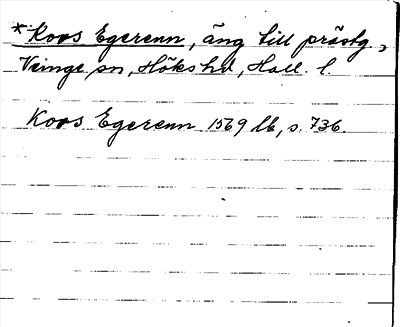 *Koos Egerenn, äng till prästg.,
Veinge sn, Höks hd, Hall. l.
Koos Egerenn 1569 lb, s. 736